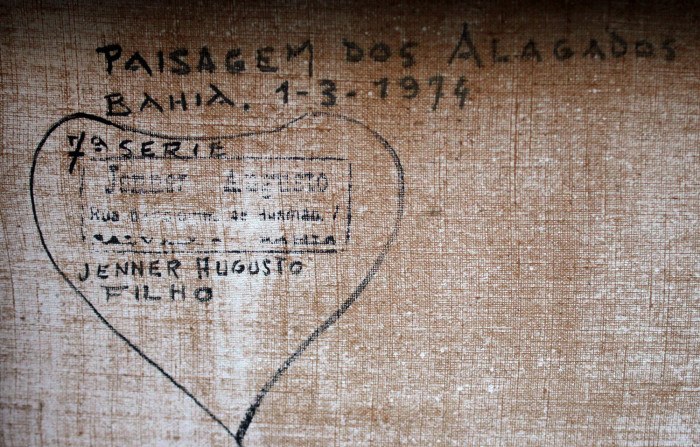 PAISAGEM DOS ALAGADOS
BAHIA. 1-3-1974
7ª SERIE
Jenner Augusto
Rua
BAHIA
JENNER AUGUSTO
FILHO